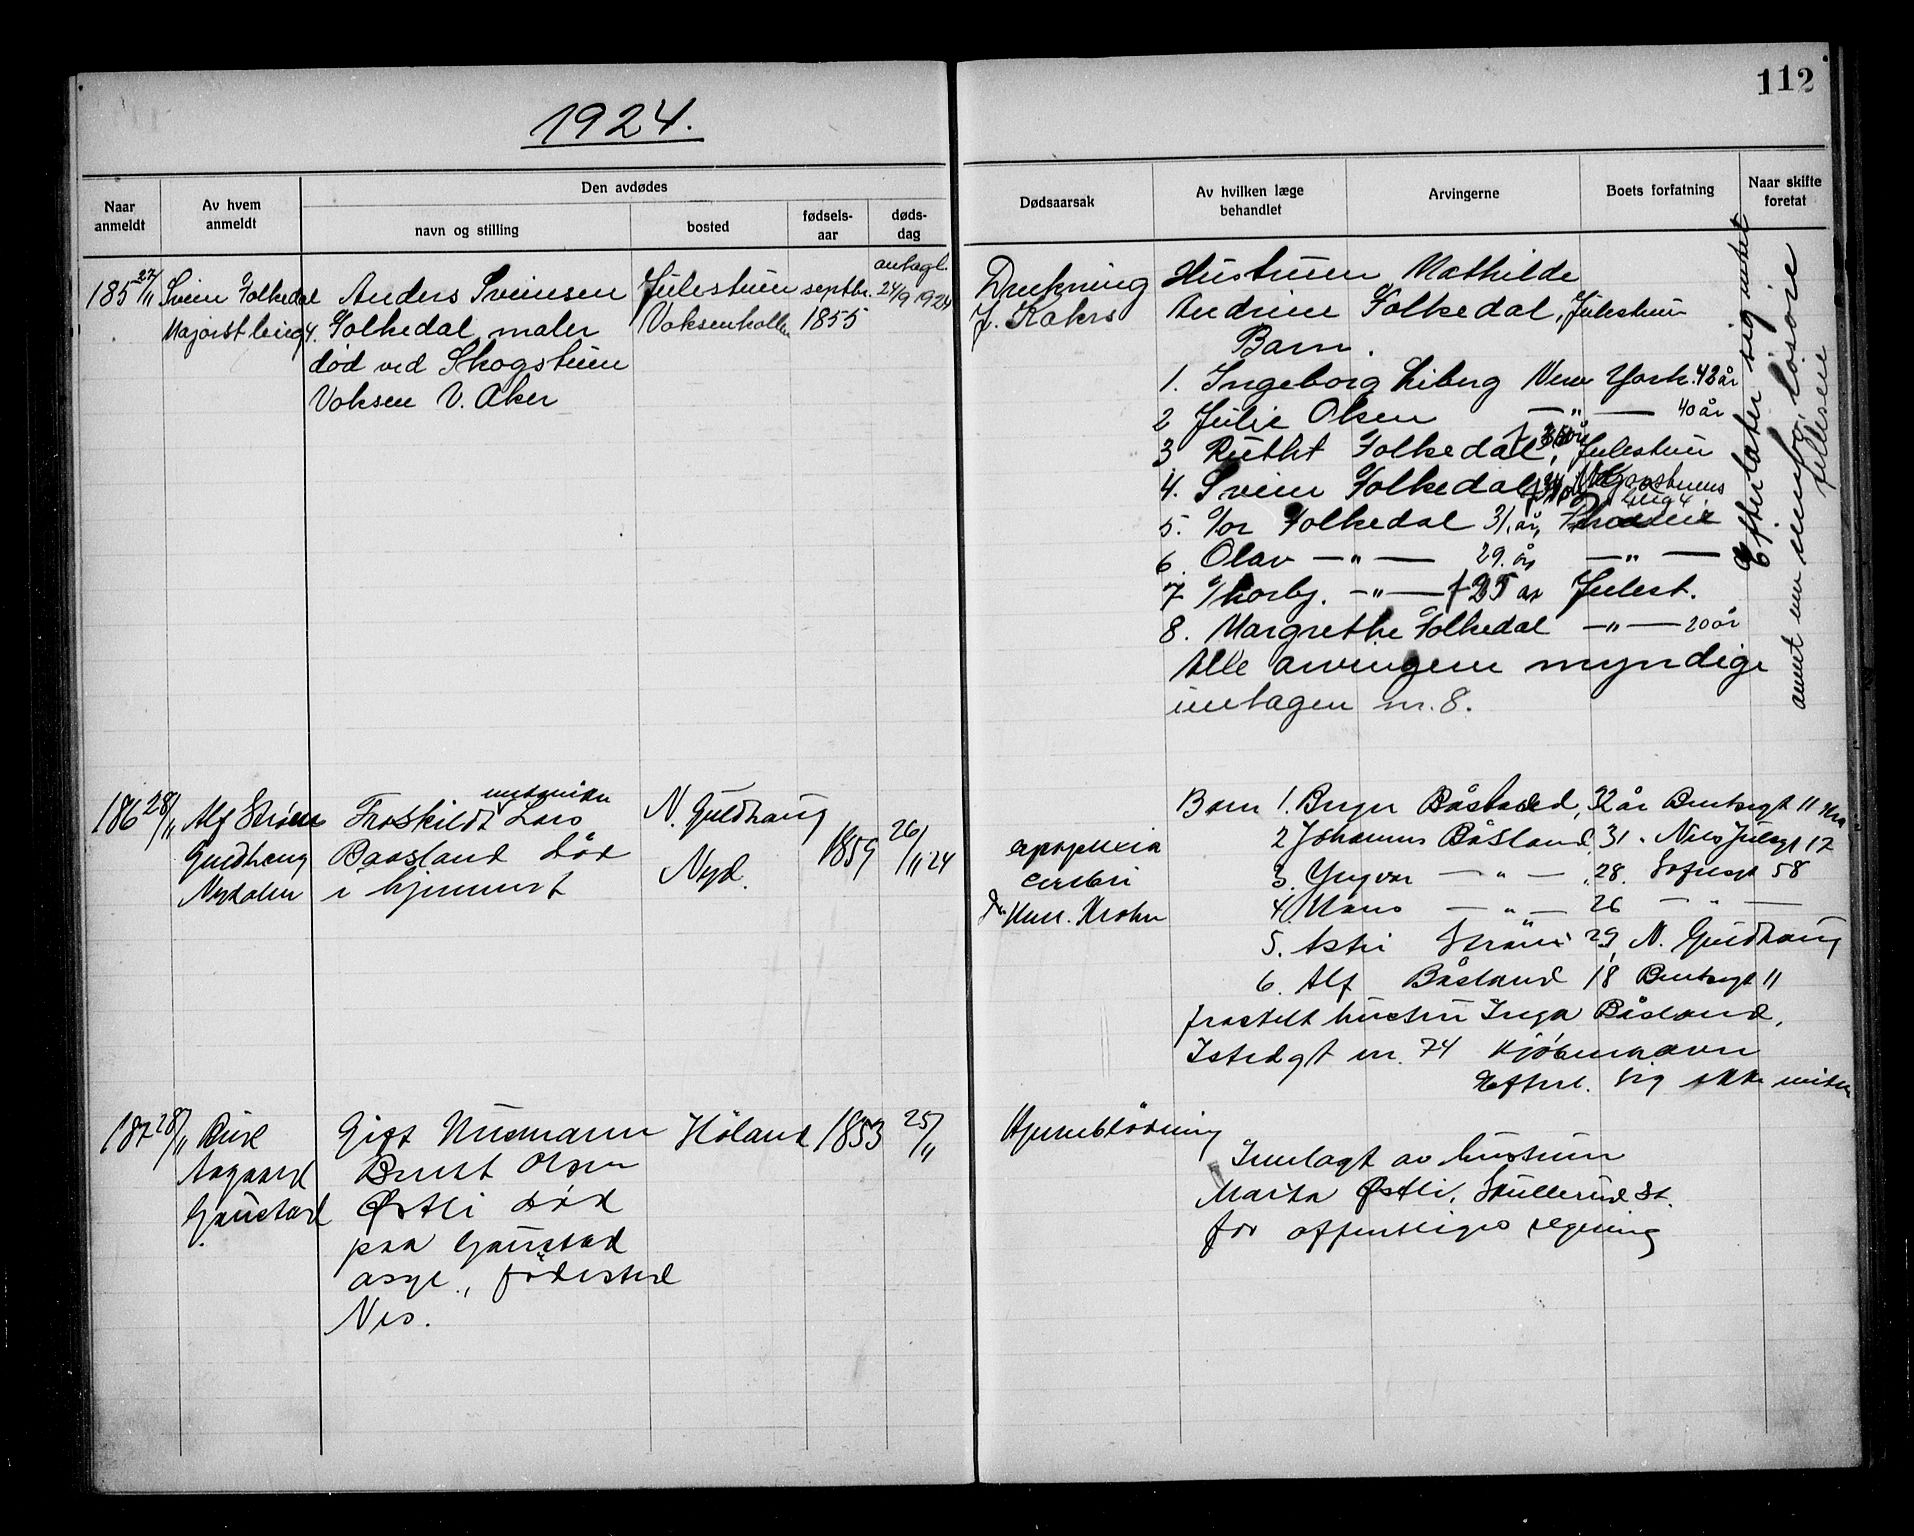 112
1924.
Naar anmeldt
Av hvem anmeldt
Den avdødes
navn og stilling
bosted
fødsels-aar
døds-dag
Dødsaarsak
Av hvilken læge behandlet
Arvingerne
Boets forfatning
Naar skifte foretat
185 27/11 Svein Folkedal Anders Sveinsen Julestuen septbr. antagl. 24/9 1924
Majorst veing 4. Folkedal, maler Voksenkollen 1855
død ved Skogstuen
Voksen V. Aker
Drukning
J. Kokrs
Hustruen Mathilde
Andrine Folkedal, Julestuen
Barn.
1. Ingeborg Liberg New York. 42 år
2 Julie Olsen — " — 40 år
3 Ruth Folkedal, Julestuen
4. Svein Folkedal
5. Tor Folkedal 31. år,
6. Olav — " — 29. år — " —
7 Thorbj. — " — 25 år Julest.
8. Margrethe Folkedal — " — 20 år
Alle arvingene myndige
untagen nr. 8.
Efterlater sig intet
annet enn innbo, løsøre
felleseie
186 28/11 Alf Strøm Fraskildt mekaniker Lars N. Guldhaug 1859 26/11 24
Guldhaug Baasland død Nyd.
Nydalen i hjemmet
apoplexia
cerebri
Dr Krohn
Barn 1. Birger Båsland, 32 år Bentsegt 11
2 Johannes Båsland, 31. Nils Juelsgt 17
3. Yngvar — " — 28. Sofiesgt 58
4. Hans — " — 26 — " —
5. Astri Strøm 29, N. Guldhaug
6. Alf Båsland 18 Bentsegt 11
fraskilt hustru Inga Båsland,
Istedgt nr. 74 Kjøbenhavn
Efterl. sig ikke midler
187 28/11 Gift Husmann Høland 1853 25/11
Aagaard Bernt Olsen
Gaustad Østli død
paa Gaustad
asyl., fødested
Nes.
Hjerneblødning
Innlagt av hustruen
Marta Østli, Skullerud st.
for offentliges regning